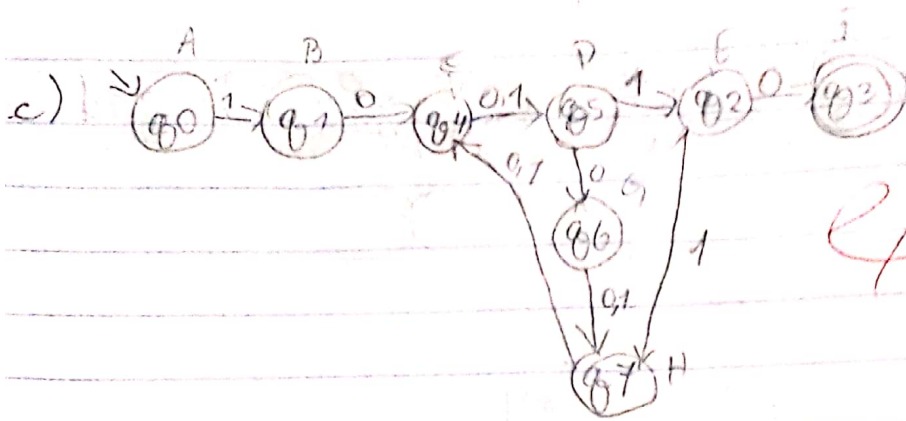 A B D E
c) q0 1 q1 0 q4 0,1 q5 1 q2 0 q3
0,1 0 0,
q6
1
0,1
q7 H